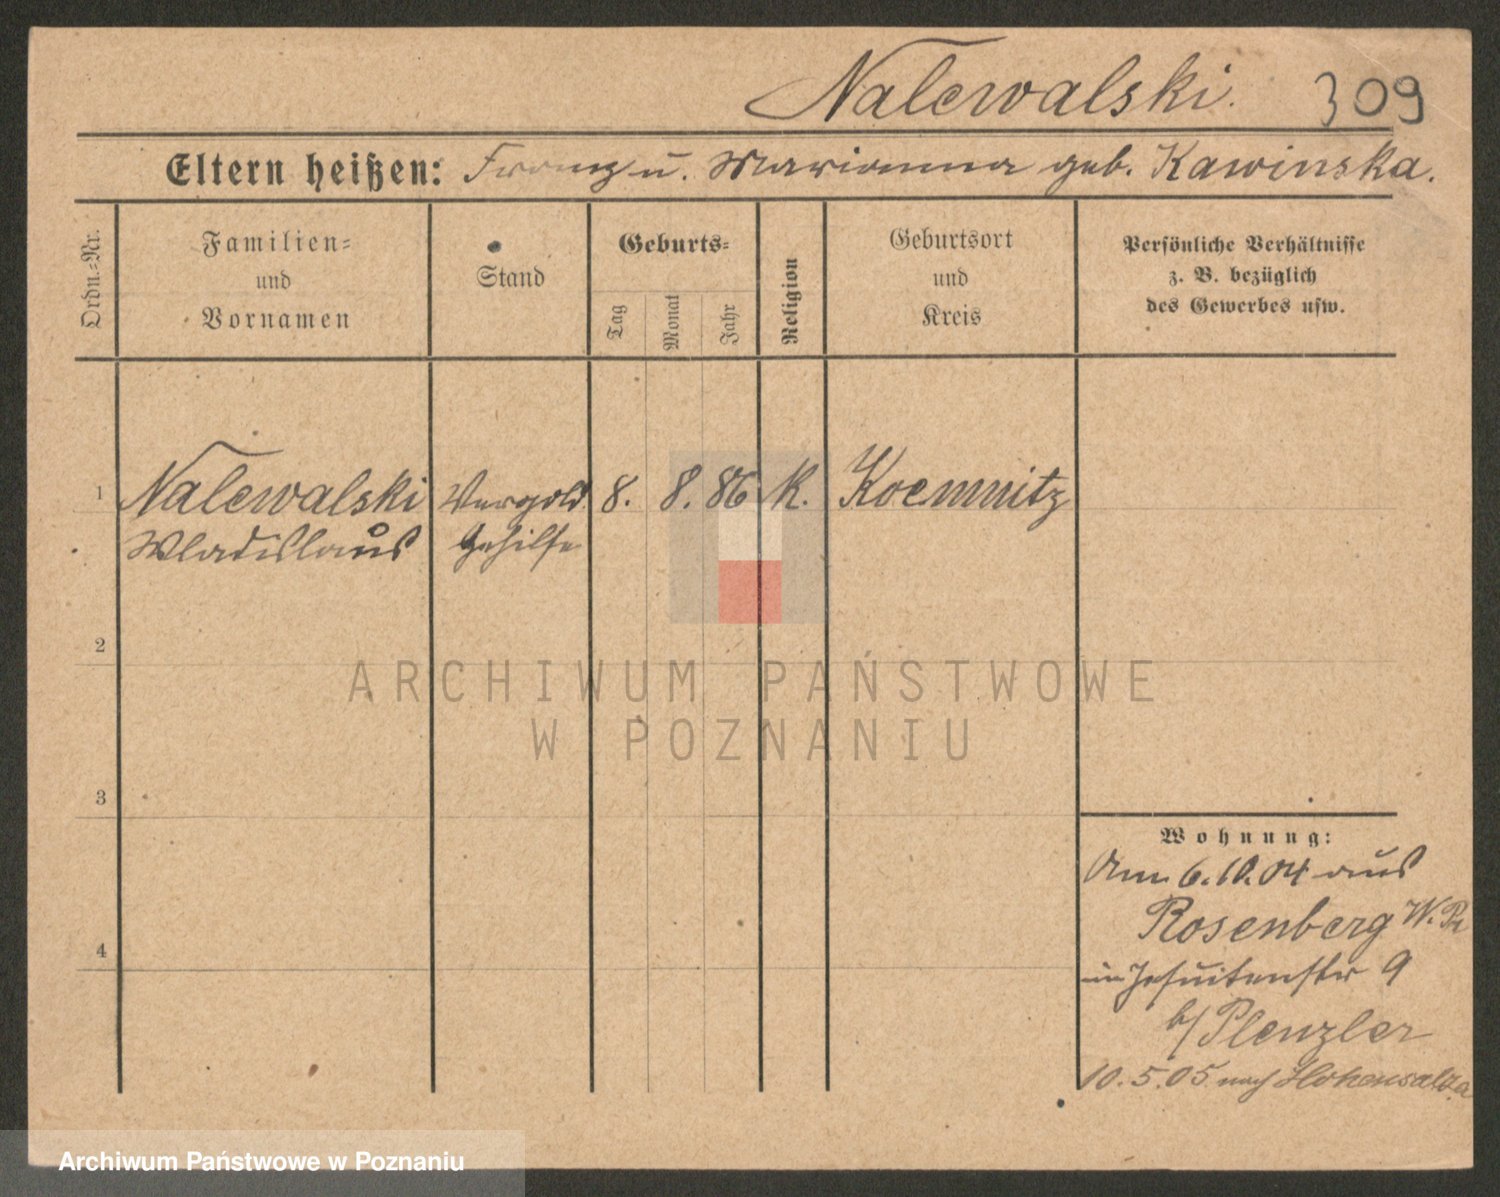 Nalewalski. 309
Eltern heißen: Franz u. Marianna geb. Kawinska.
Ordn.-Nr.
Familien-
und
Vornamen
Stand
Geburts-
Tag
Monat
Jahr
Religion
Geburtsort
und
Kreis
Persönliche Verhältnisse
z. B. bezüglich
des Gewerbes usw.
1 Nalewalski Vergold. 8. 8. 86 K. Koemnitz
Wladislaus Gehilfe
2
ARCHIWUM PAŃSTWOWE
W POZNANIU
3
Wohnung:
Am 6.10.04 aus
Rosenberg W. Pr
in Jesuitenstr 9
4
b/ Plenzler
10.5.05 nach Hohensalza
Archiwum Państwowe w Poznaniu